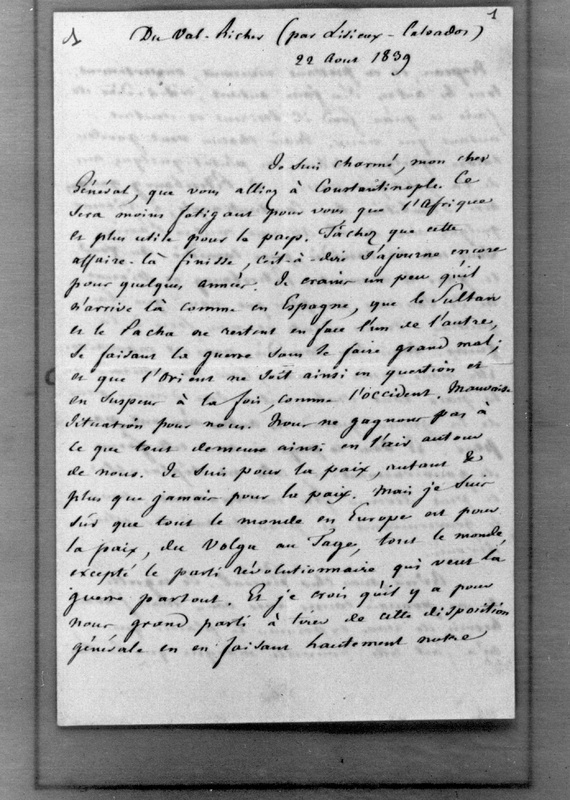 1
Du Val-Richer (par Lisieux - Calvados)
22 Aout 1839
Je suis charmé, mon cher
Général, que vous alliez à Constantinople. Ce
sera moins fatigant pour vous que l'Afrique
et plus utile pour le pays. Tâchez que cette
affaire-là finisse, c'est-à-dire s'ajourne encore
pour quelques années. Je crains un peu qu'il
n'arrive là comme en Espagne, que le Sultan
et le Pacha ne restent en face l'un de l'autre,
se faisant la guerre sans se faire grand mal;
et que l'Orient ne soit ainsi en question et
en suspens à la fois, comme l'occident. Mauvaise
situation pour nous. Nous ne gagnons pas à
ce que tout demeure ainsi en l'air autour
de nous. Je suis pour la paix, autant &
plus que jamais pour la paix. Mais je suis
sûr que tout le monde en Europe est pour
la paix, du Volga au Tage, tout le monde
excepté le parti révolutionnaire qui veut la
guerre partout. Et je crois qu'il y a pour
nous grand parti à tirer de cette disposition
générale en en faisant hautement notre